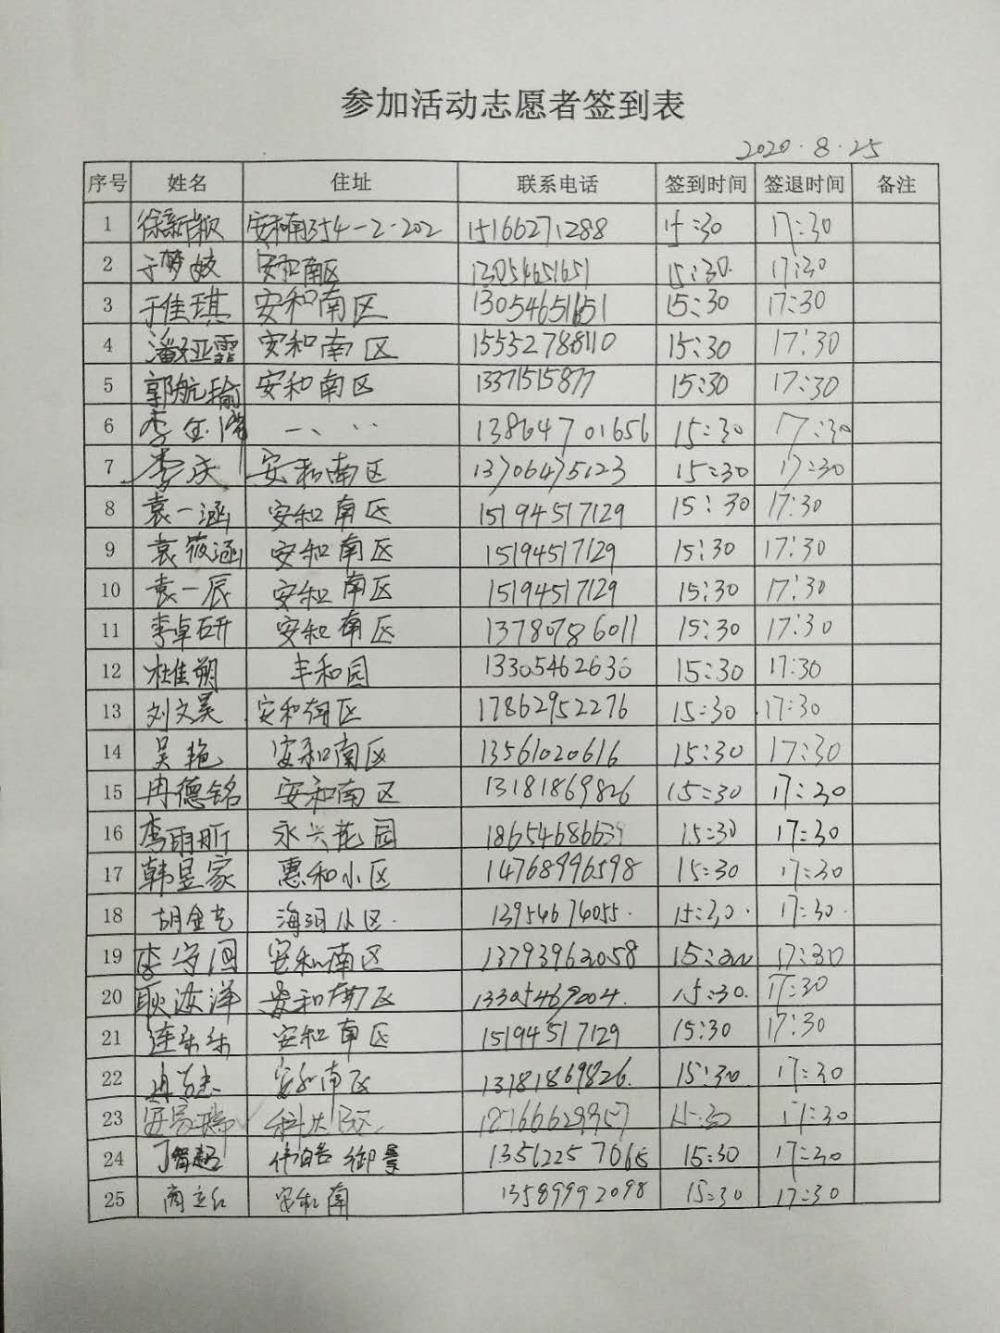 参加活动志愿者签到表
2020.8.25
序号 姓名 住址 联系电话 签到时间 签退时间 备注
1 徐新颖 安和南354-2-202 15166271288 15:30 17:30
2 于梦姣 安和南区 13054651651 15:30 17:30
3 于佳琪 安和南区 13054651651 15:30 17:30
4 潘亚霏 安和南区 15552788110 15:30 17:30
5 郭航瑜 安和南区 13371515877 15:30 17:30
6 李 13864701656 15:30 17:30
7 李庆 安和南区 13706475123 15:30 17:30
8 袁一涵 安和南区 15194517129 15:30 17:30
9 袁筱涵 安和南区 15194517129 15:30 17:30
10 袁一辰 安和南区 15194517129 15:30 17:30
11 李卓研 安和南区 13780786011 15:30 17:30
12 杜佳朔 丰和园 13305462630 15:30 17:30
13 刘文昊 安和南区 17862952276 15:30 17:30
14 吴艳 安和南区 13561020616 15:30 17:30
15 冉德铭 安和南区 13181869826 15:30 17:30
16 李雨昕 永兴花园 15:30 17:30
17 韩昱家 惠和小区 14768996598 15:30 17:30
18 胡金 小区 13954674055 15:30 17:30
19 李 安和南区 13793962058 15:30 17:30
20 耿 安和南区 13305469004 15:30 17:30
21 连乐乐 安和南区 15194517129 15:30 17:30
22 冉 安和南区 13181869826 15:30 17:30
23 15:30 17:30
24 丁 御景 15:30 17:30
25 商立红 安和南 13589992098 15:30 17:30